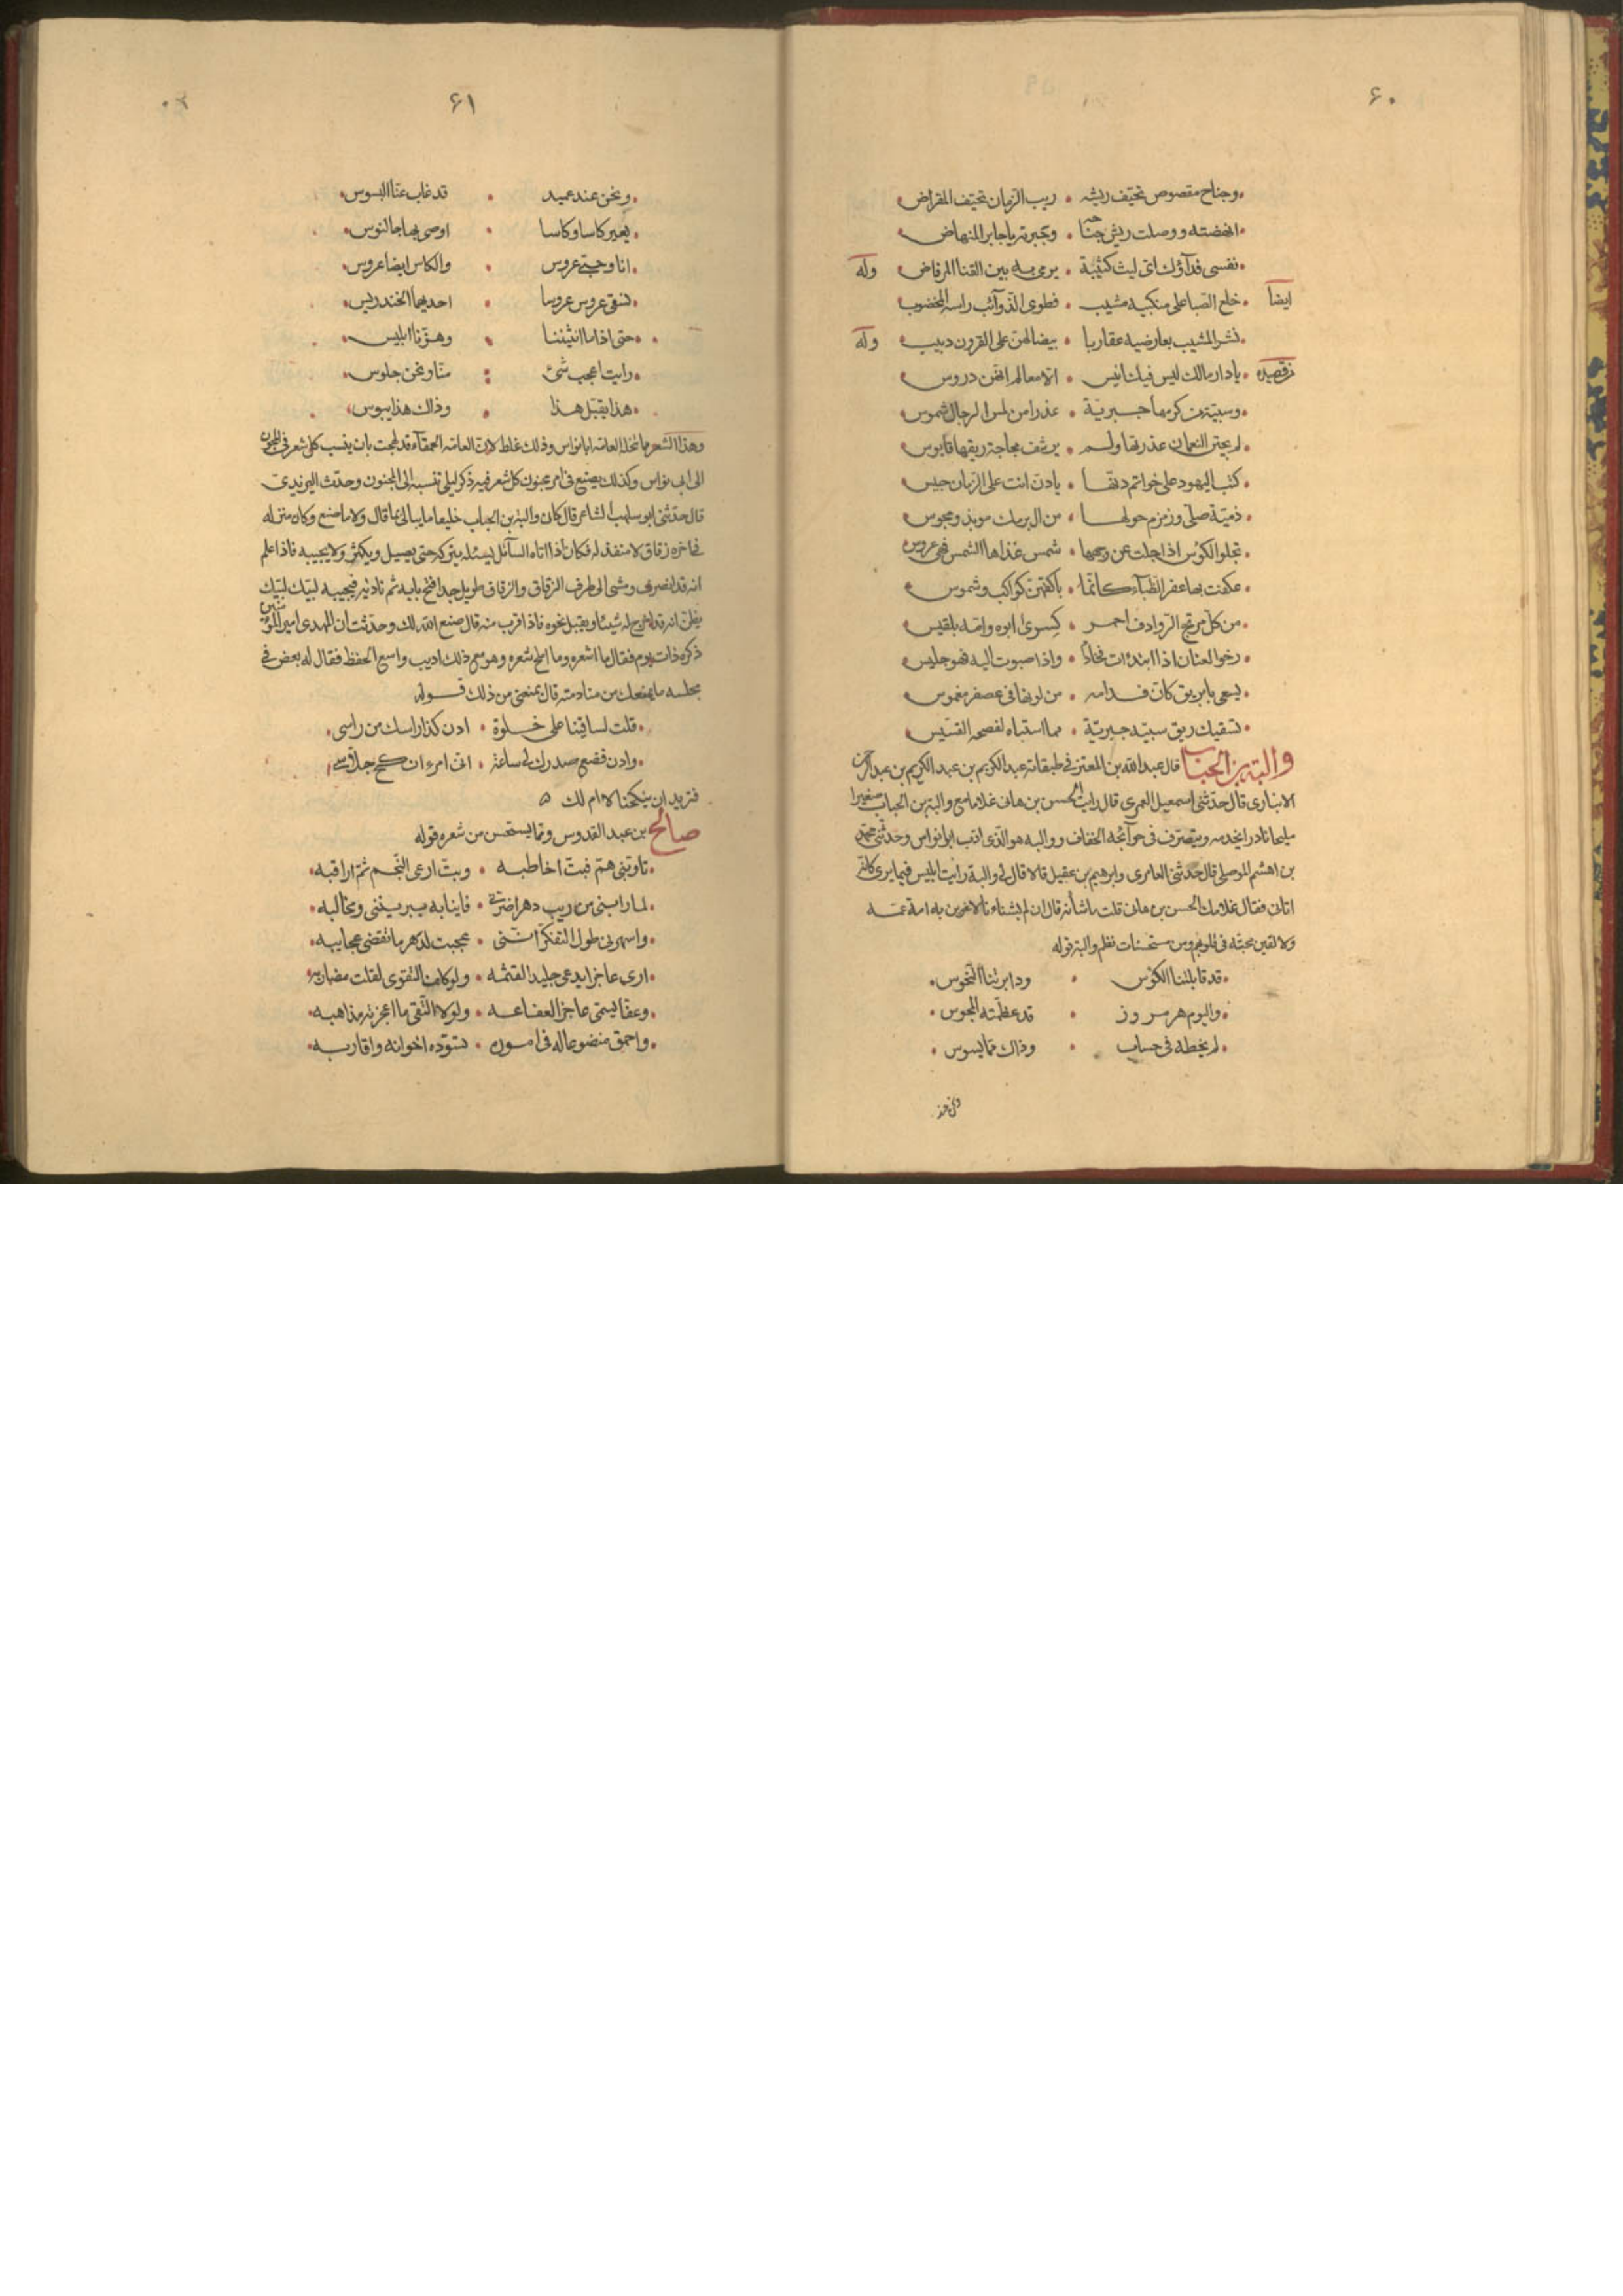 ٦٠
وجناح مقصوص تحيّف ريشه • ريب الزمان تحيّف المقراض
انهضته ووصلت ريش جناحه • وجبرته يا جابر المنهاض
نفسى فدآؤك اىّ ليث كتيبة • يرمى به بين القنا المرفاض وله
ايضا • خلع الصبا على منكبيه مشيب • فطوى الذوآئب راسه المخضوب
نشر المشيب بعارضيه عقاربا • بيضا لهنّ على القرون دبيب وله
من قصيده • يا دار مالك ليس فيك انيس • الّا معالم ايهنّ دروس
وسبيّة من كرمها • عذرا من لمس الرجال شموس
لم يجتر النعمان عذرتها ولم • يرشف مجاجة ريقها قابوس
كتب اليهود على خواتم دنّها • يا دنّ انت على الزمان حبيس
ذميّة صلّى وزمزم حولها • من ال برمك موبذ ومجوس
تجلو الكؤس اذا جلت عن وجهها • شمس غذاها الشمس فهى عروس
عكفت بها عفر الظبآء كانّما • باكفهنّ كواكب وشموس
من كلّ مرتجّ الروادف احمر • كسرى ابوه وامّه بلقيس
رخو العنان اذا ابتدات • واذا صبوت اليه فهو جليس
يسعى بابريق كانّ فدامه • من لونها فى عصفر مغموس
تسقيك ريق سبيّه • مما استباه لفصحه القسّيس
والبة بن الحباب قال عبد الله بن المعتز فى طبقاته عبد الكريم بن عبد الكريم بن عبد الرحمن
الانبارى قال حدّثنى اسمعيل العمرى قال رايت الحسن بن هانى غلاما مع والبة بن الحباب صغيرا
مليحا نادرا يخدمه ويتصرّف فى حوآئجه الخفاف ووالبه هو الذى ادّب ابا نواس وحدّثنى محمّد
بن اهشم الموصلى قال حدّثنى العامرى وابرهيم بن عقيل قالا قال لى والبة رايت ابليس فيما يرى كانّه
اتانى فقال غلامك الحسن بن هانى قلت ما شأنه قال ان لم يشنأه نا لاغوين به امة محمّد
ولالقين محبّته فى قلوبهم ومن مستحسنات نظم والبة قوله
قد قابلتنا الكؤس • ودابرتنا النحوس
واليوم هرمز روز • قد عظّمته المجوس
لم يخطه فى حساب • وذاك ممّا يسوس
ونحن
٦١
ونحن عند عميد • قد غاب عنّا البسوس
يعير كاسا وكاسا • اوصى بها جالنوس
انا وحبّى عروس • والكاس ايضا عروس
نسقى عروس عروسا • احديهما الخندريس
حتى اذا ما انثيننا • وهزّنا ابليس
رايت اعجب شئ • منّا ونحن جلوس
هذا يقبّل هذا • وذاك هذا يبوس
وهذا الشعر ما تنحله العامّه ابا نواس وذلك غلط لانّ العامّه الحمقآء قد لهجت بان ينسب كلّ شعر فى المجون
الى ابى نواس وكذلك يصنع فى امر مجنون كل شعر فيه ذكر ليلى تنسبه الى المجنون وحدّث اليزيدى
قال حدّثنى ابو سلهب الشاعر قال كان والبة بن الحباب خليعا ما يبالى بما قال ولا ما صنع وكان منزله
فى اخره زقاق لا منفذ له فكان اذا اتاه السآئل يسئله يتركه حتى يصيل ويكثر ولا يجيبه فاذا علم
انه قد انصرف ومشى الى طرف الزقاق والزقاق طويل جدا فتح بابه ثم ناديه فيجيبه لبيّك لبيّك
يظنّ انه قد اخرج له شيئا ويقبل نحوه فاذا قرب منه قال صنع الله لك وحدّثت ان المهدى امير المؤمنين
ذكره ذات يوم فقال ما اشعره وما املح شعره وهو مع ذلك اديب واسع الحفظ فقال له بعض فى
مجلسه ما يمنعك من منادمته قال يمنعنى من ذلك قوله
قلت لساقينا على خلوة • ادن كذا راسك من راسى
وادن فضع صدرك لى ساعة • انى امرء انكح جلّاسى
فتريد ان ينكحنا لا ام لك ه
صالح بن عبد القدوس وممّا يستحسن من شعره قوله
تاوّبنى همّ فبتّ اخاطبه • وبتّ ارعى النجم ثمّ اراقبه
لما رابنى من ريب دهر اضرّنى • فانيابه يبريننى ومخالبه
واسهرنى طول التفكر انّنى • عجبت لدهر ما تقضى عجايبه
ارى عاجزا يدعى جليدا لقشمه • ولو كلّف التقوى لفلّت مضاربه
وعفّا يسمّى عاجزا لعفافه • ولولا التّقى ما اعجزته مذاهبه
واحمق مصنوعا له فى اموره • يسوّده اخوانه واقاربه